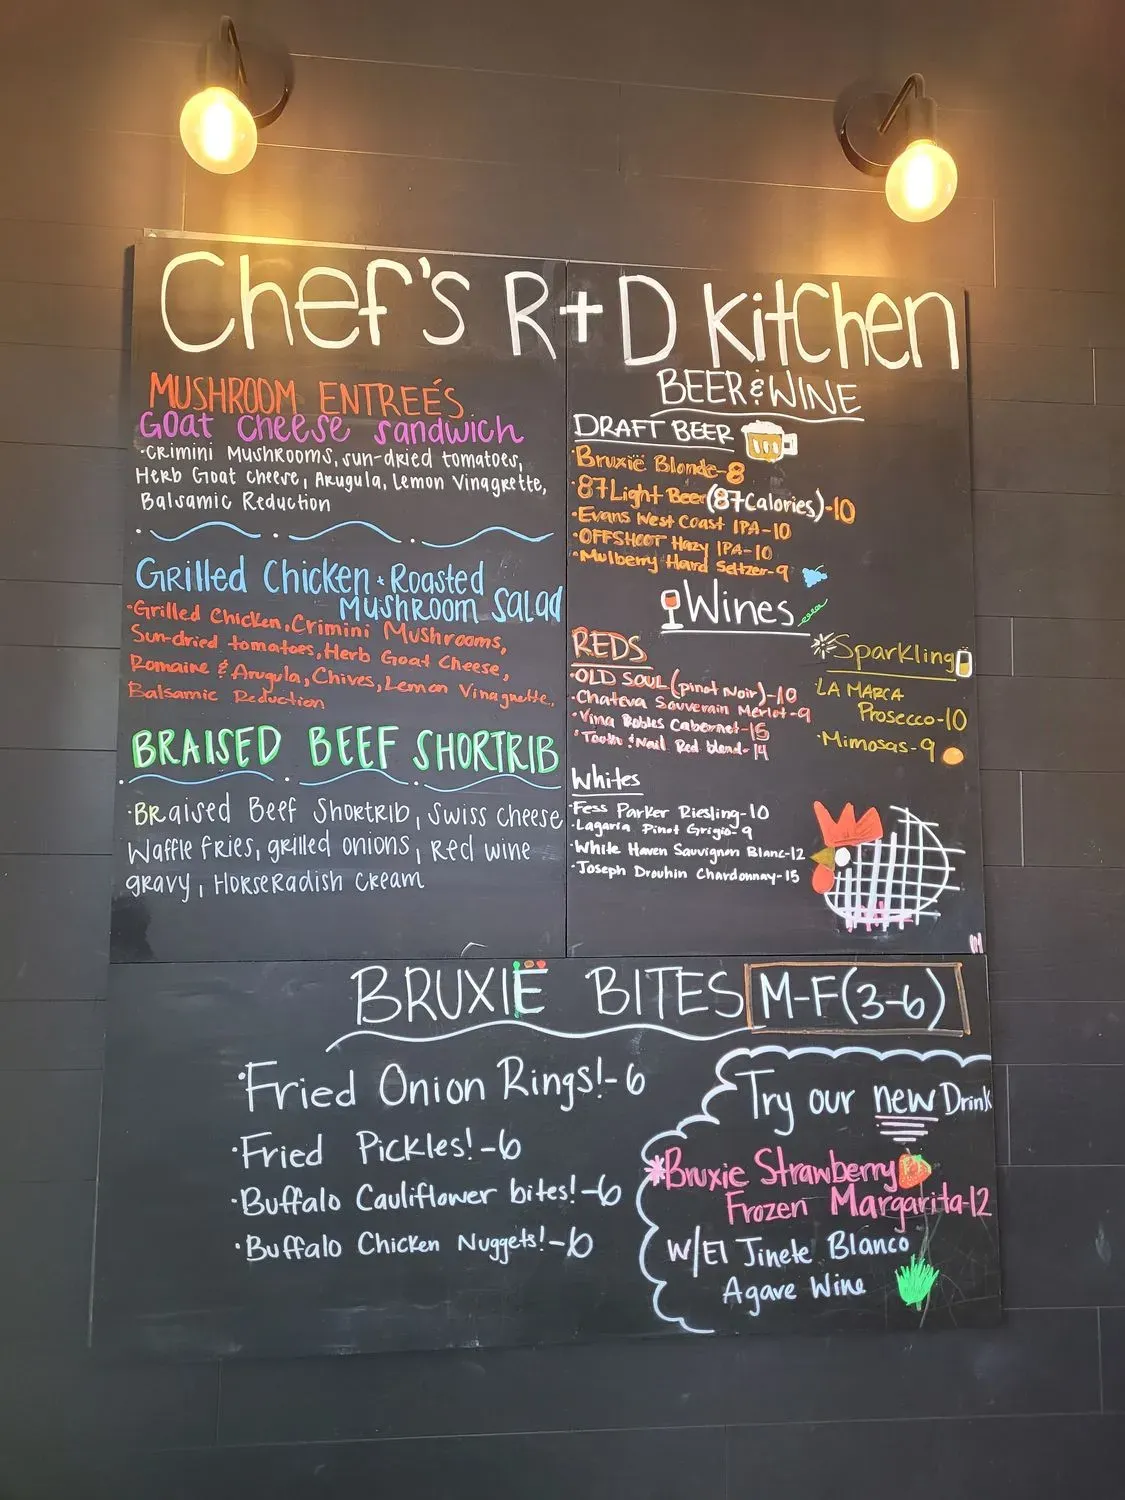 Chef's R+D Kitchen
MUSHROOM ENTREÉS
Goat Cheese Sandwich
·Crimini Mushrooms, sun-dried tomatoes,
Herb Goat Cheese, Arugula, Lemon Vinagrette,
Balsamic Reduction
Grilled Chicken + Roasted
Mushroom Salad
·Grilled Chicken, Crimini Mushrooms,
Sun-dried tomatoes, Herb Goat Cheese,
Romaine & Arugula, Chives, Lemon Vinagrette,
Balsamic Reduction
BRAISED BEEF SHORTRIB
·BRaised Beef Shortrib, Swiss cheese
Waffle fries, grilled onions, Red wine
gravy, Horseradish Cream
BEER & WINE
DRAFT BEER
·Bruxie Blonde-8
·87 Light Beer (87 Calories)-10
·Evans West Coast IPA-10
·OFFSHOOT Hazy IPA-10
·Mulberry Hard Seltzer-9
Wines
REDS
·OLD SOUL (pinot Noir)-10
·Chateva Souverain Merlot-9
·Vina Robles Cabernet-15
·Tooth & Nail Red blend-14
Sparkling
·LA MARCA
Prosecco-10
·Mimosas-9
Whites
·Fess Parker Riesling-10
·Lagaria Pinot Grigio-9
·White Haven Sauvignon Blanc-12
·Joseph Drouhin Chardonnay-15
BRUXIË BITES M-F(3-6)
·Fried Onion Rings!-6
·Fried Pickles!-6
·Buffalo Cauliflower bites!-6
·Buffalo Chicken Nuggets!-6
Try our new Drink
*Bruxie Strawberry
Frozen Margarita-12
W/El Jinete Blanco
Agave Wine